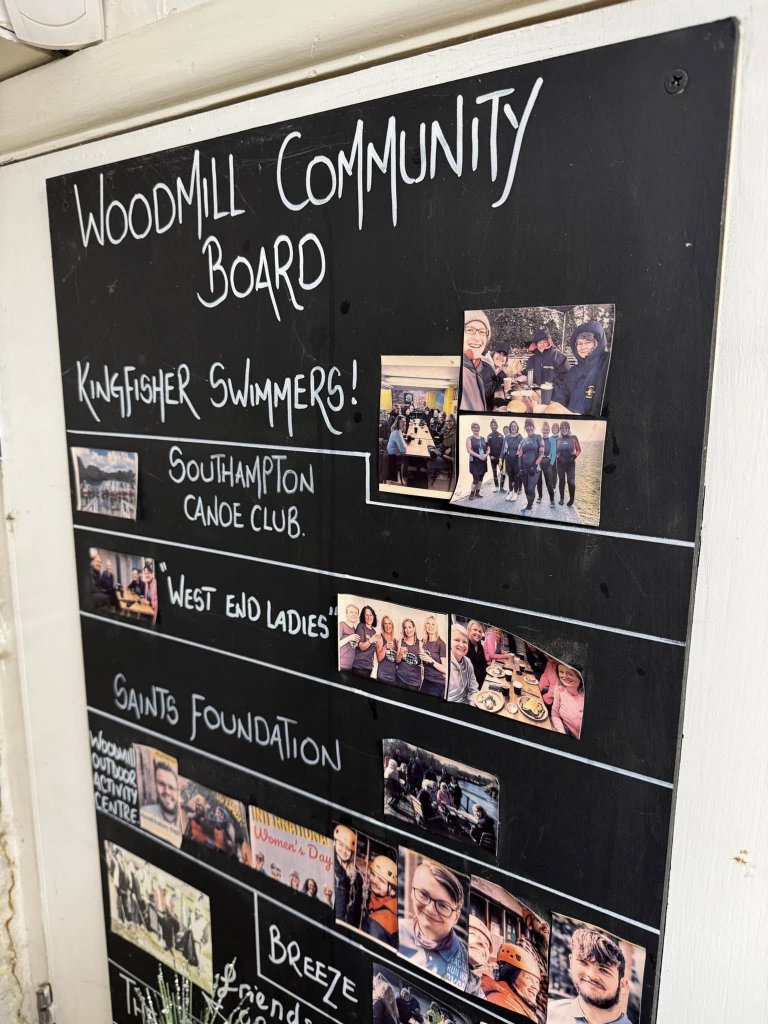 WOODMILL COMMUNITY
BOARD
KINGFISHER SWIMMERS!
SOUTHAMPTON
CANOE CLUB.
"WEST END LADIES"
SAINTS FOUNDATION
WOODMILL
OUTDOOR
ACTIVITY
CENTRE
INTERNATIONAL
Women's Day
BREEZE
Friends